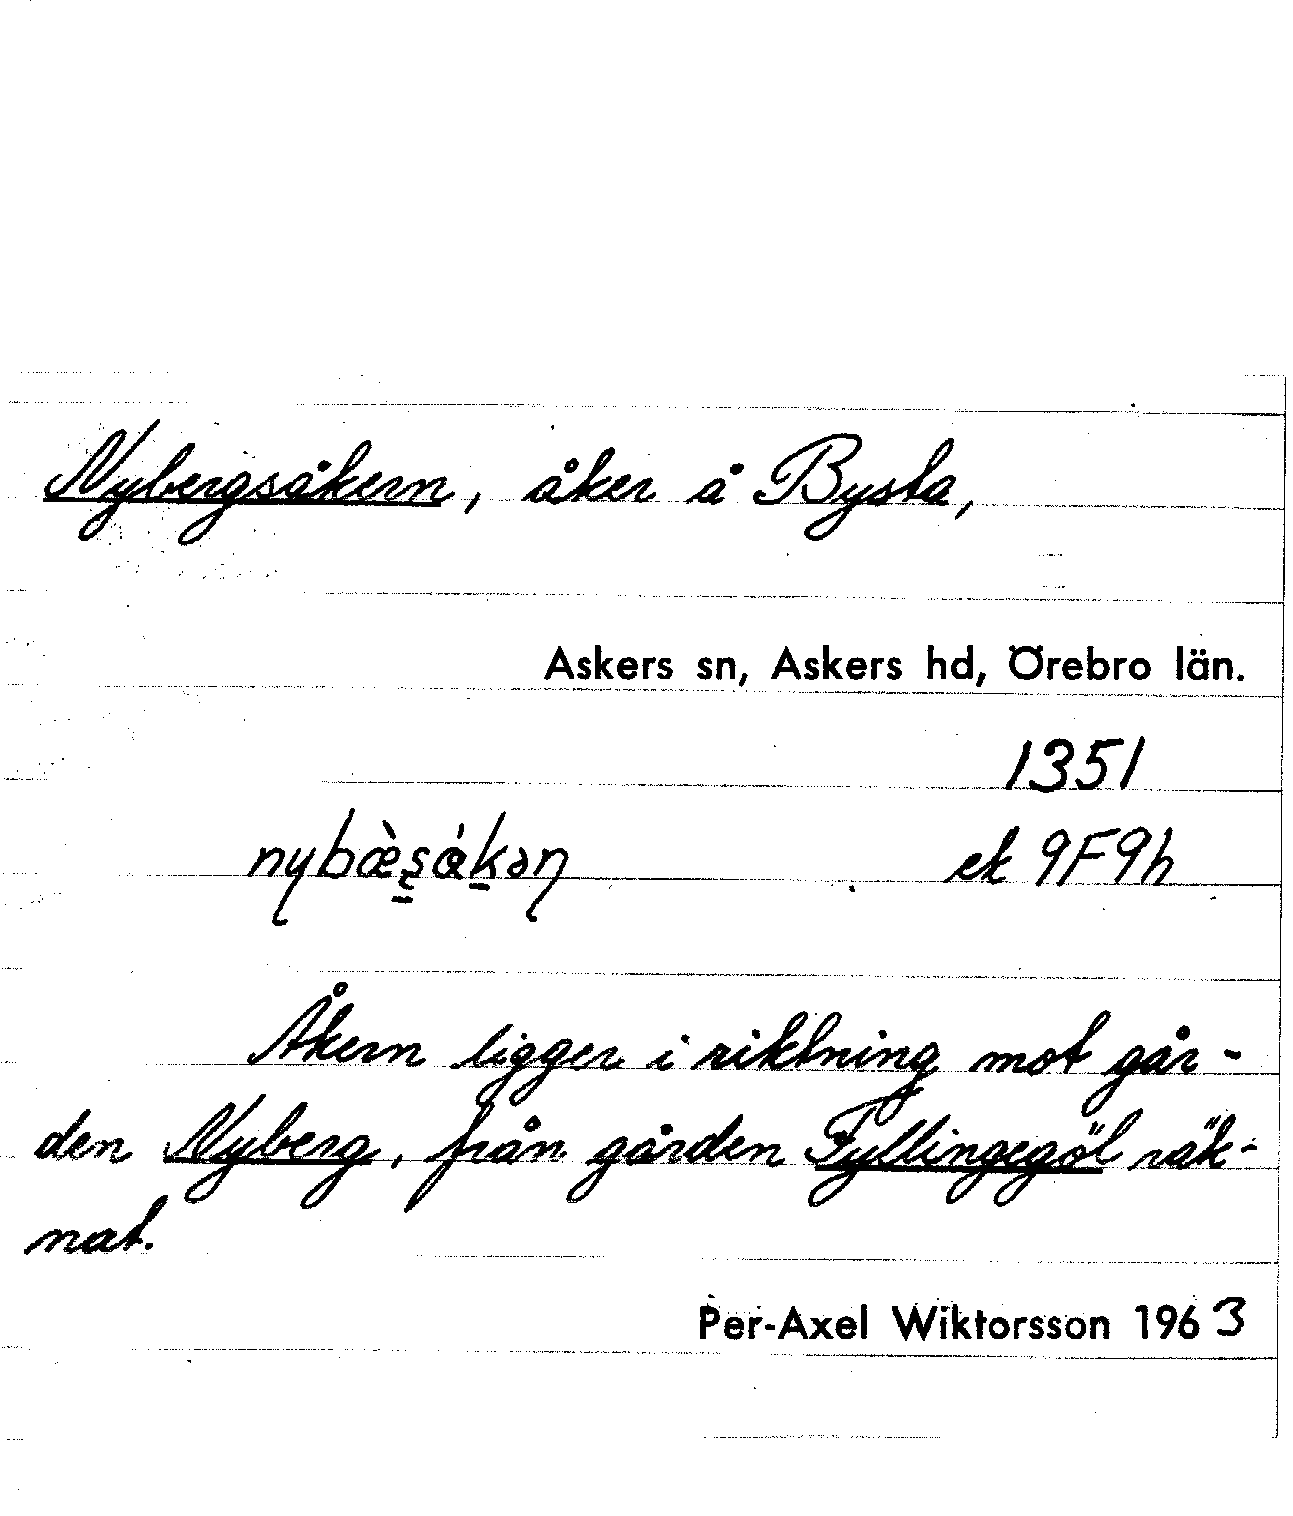 Nybergsåkern, åker å Bysta,
Askers sn, Askers hd, Örebro län.
1351
ek 9F9h
Åkern ligger i riktning mot går-
den Nyberg, från gården Fyllingegöl räk-
nat.
Per-Axel Wiktorsson 1963